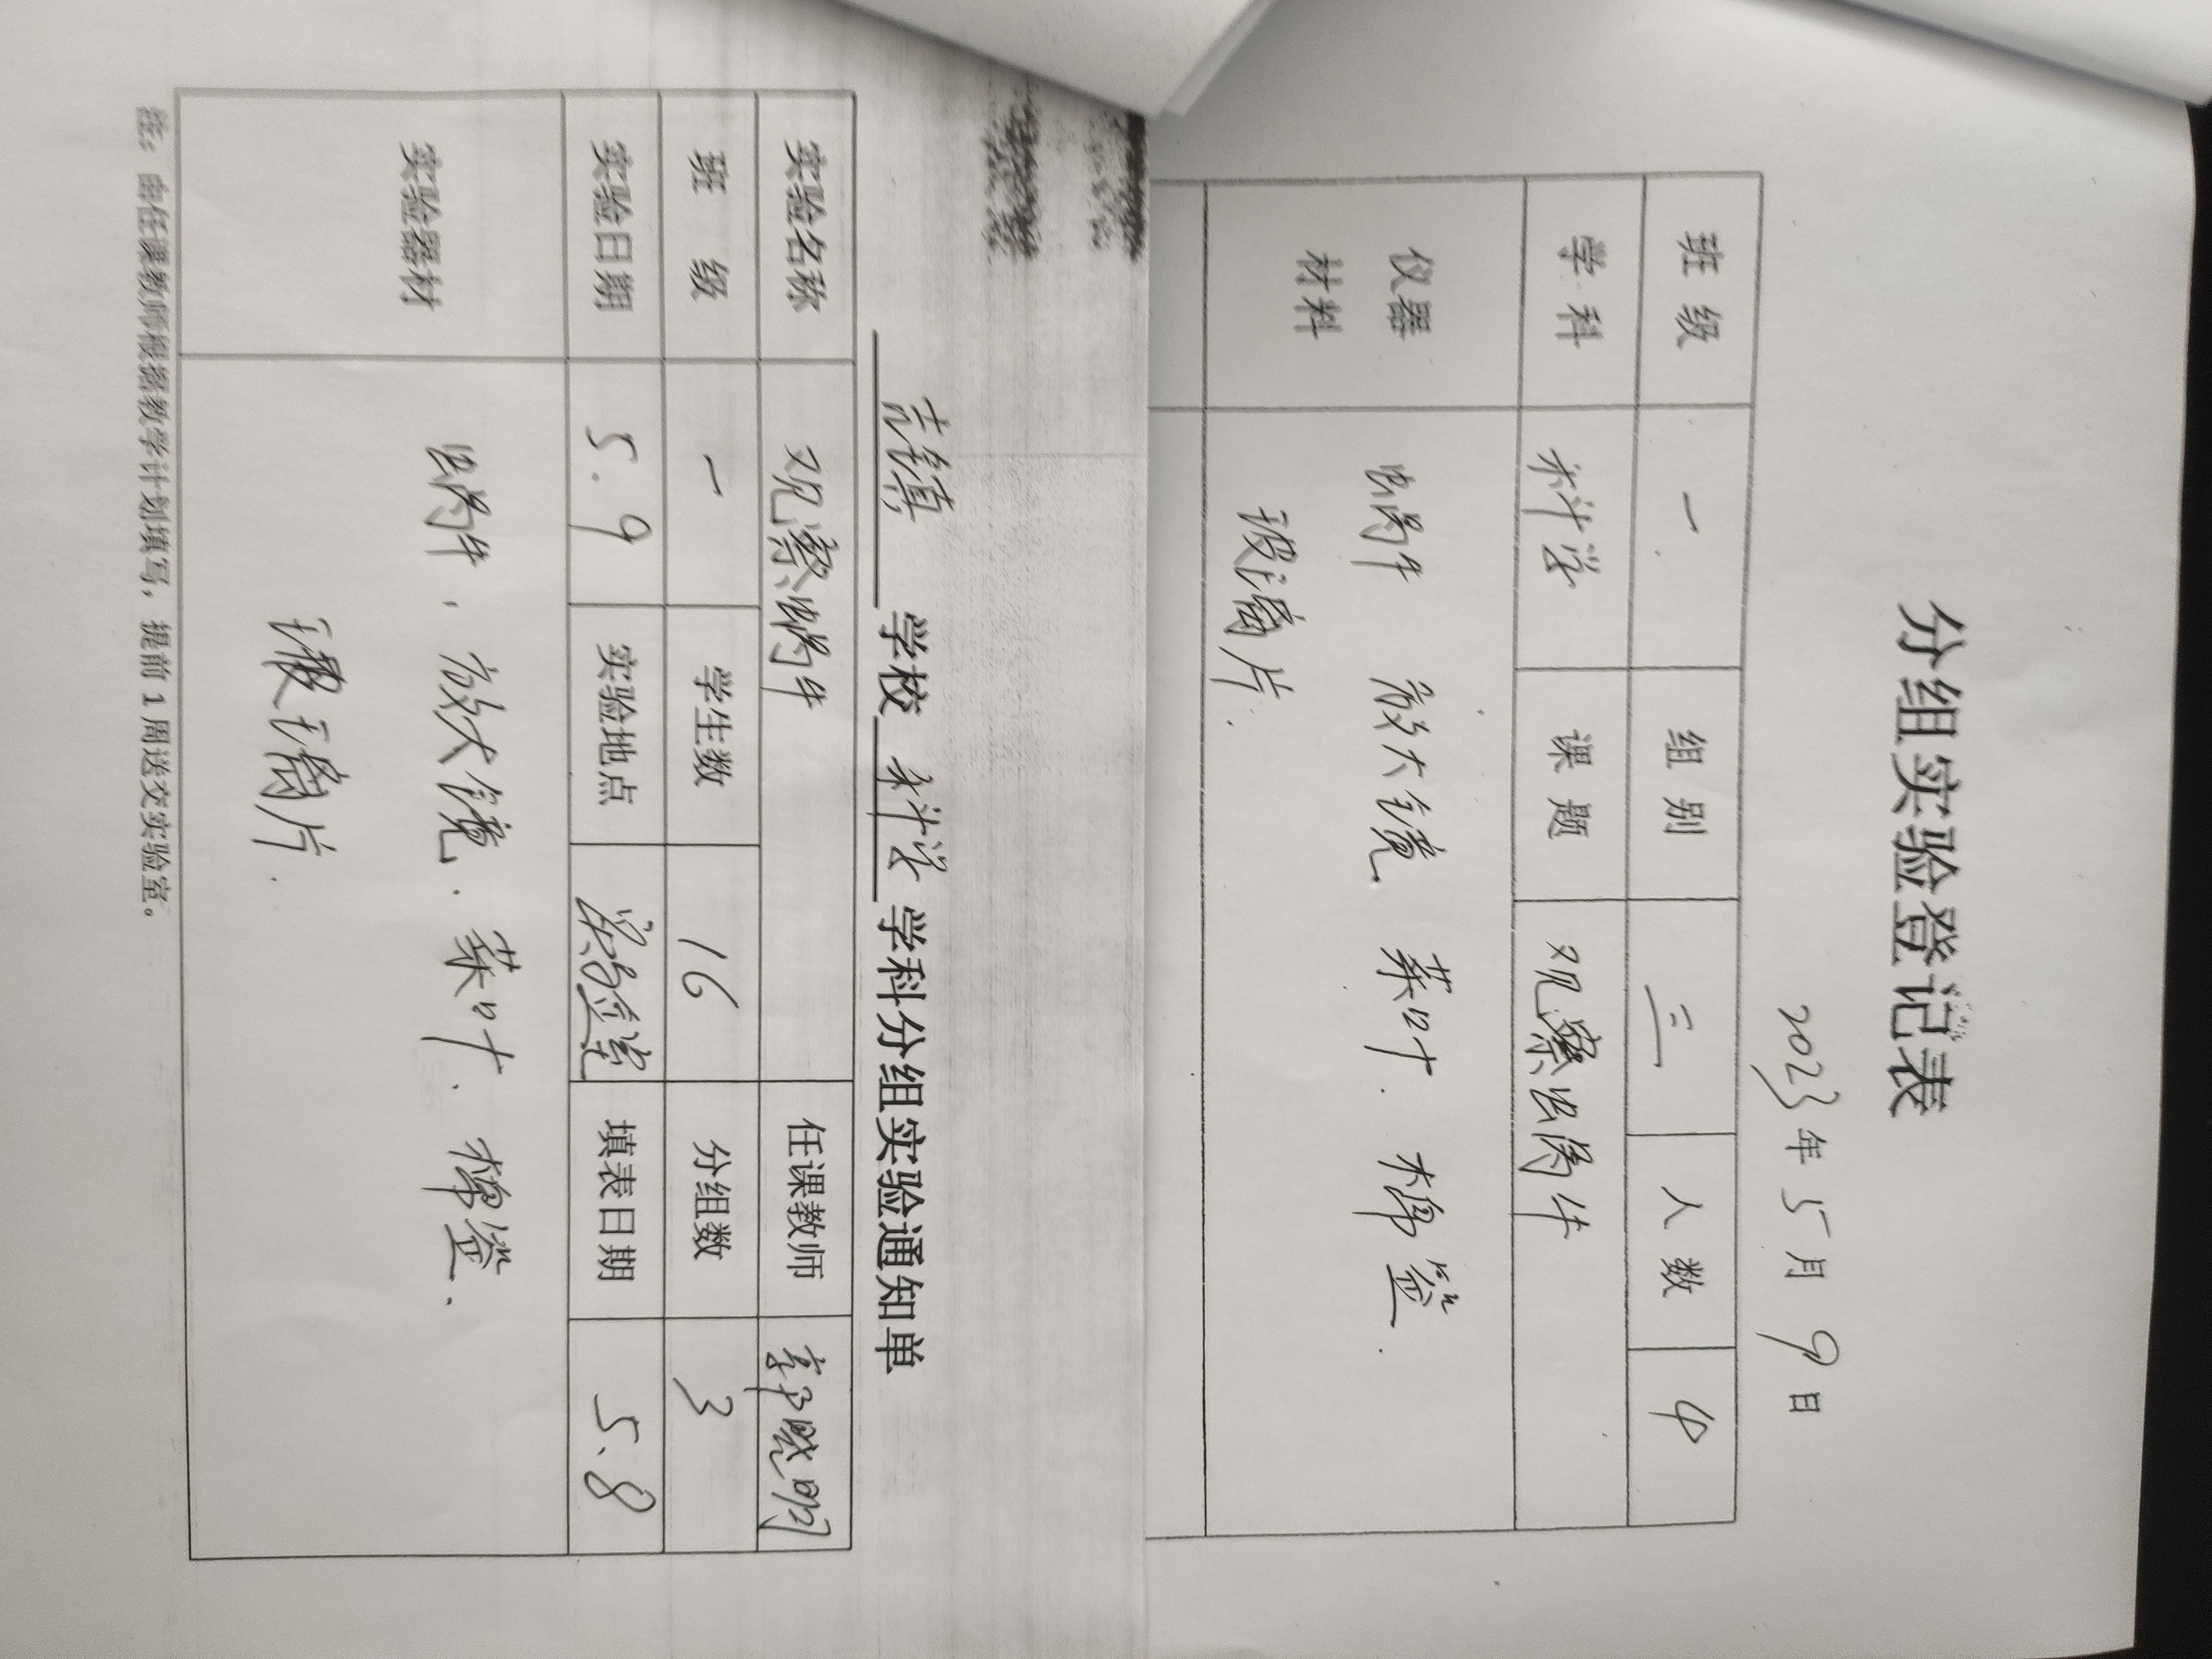 分组实验登记表
2023年5月9日
班 级 一 组 别 三 人 数 4
学 科 科学 课 题 观察蜗牛
仪器 材料 蜗牛 放大镜. 菜叶. 棉签.
玻璃片.
学校 科学 学科分组实验通知单
实验名称 观察蜗牛 任课教师
班 级 一 学生数 16 分组数 3
实验日期 5.9 实验地点 实验室 填表日期 5.8
实验器材 蜗牛. 放大镜. 菜叶. 棉签.
玻璃片.
注：由任课教师根据教学计划填写，提前1周送交实验室。